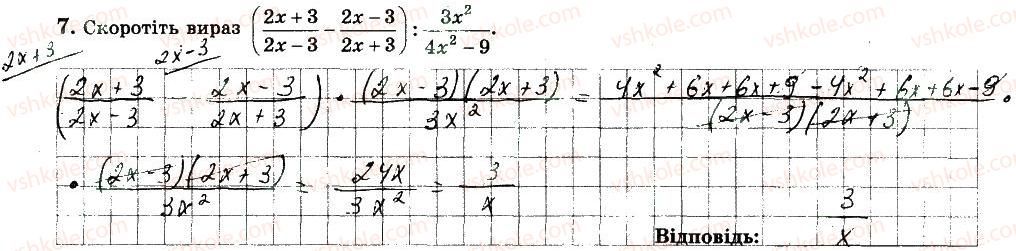 7. Скоротіть вираз ((2x + 3)/(2x − 3) − (2x − 3)/(2x + 3)) : 3x²/(4x² − 9).
2x+3 2x−3
((2x + 3)/(2x − 3) − (2x − 3)/(2x + 3)) · (2x − 3)(2x + 3)/3x² = (4x² + 6x + 6x + 9 − 4x² + 6x + 6x − 9)/((2x − 3)(2x + 3)) ·
· (2x − 3)(2x + 3)/3x² = 24x/3x² = 3/x
Відповідь: 3/x
vshkole.com